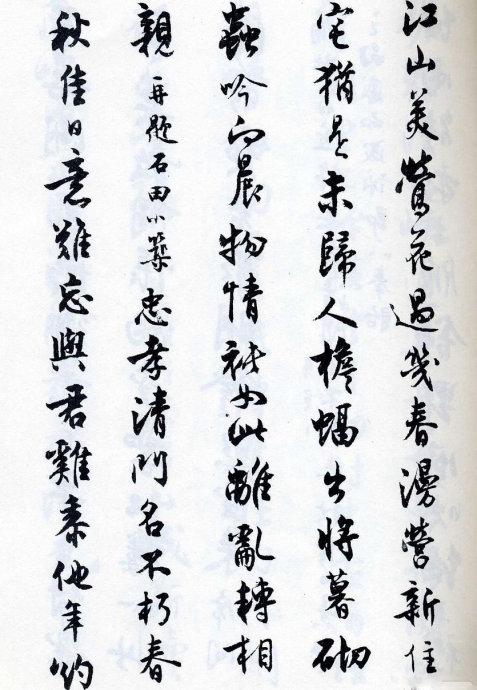 江山美鶯花過幾春漫營新住
宅猶是未歸人檐蝠出將暮砌
蟲吟向晨物情祇如此離亂轉相
親 再題石田小築 忠孝清門名不朽春
秋佳日意難忘與君雞黍他年約